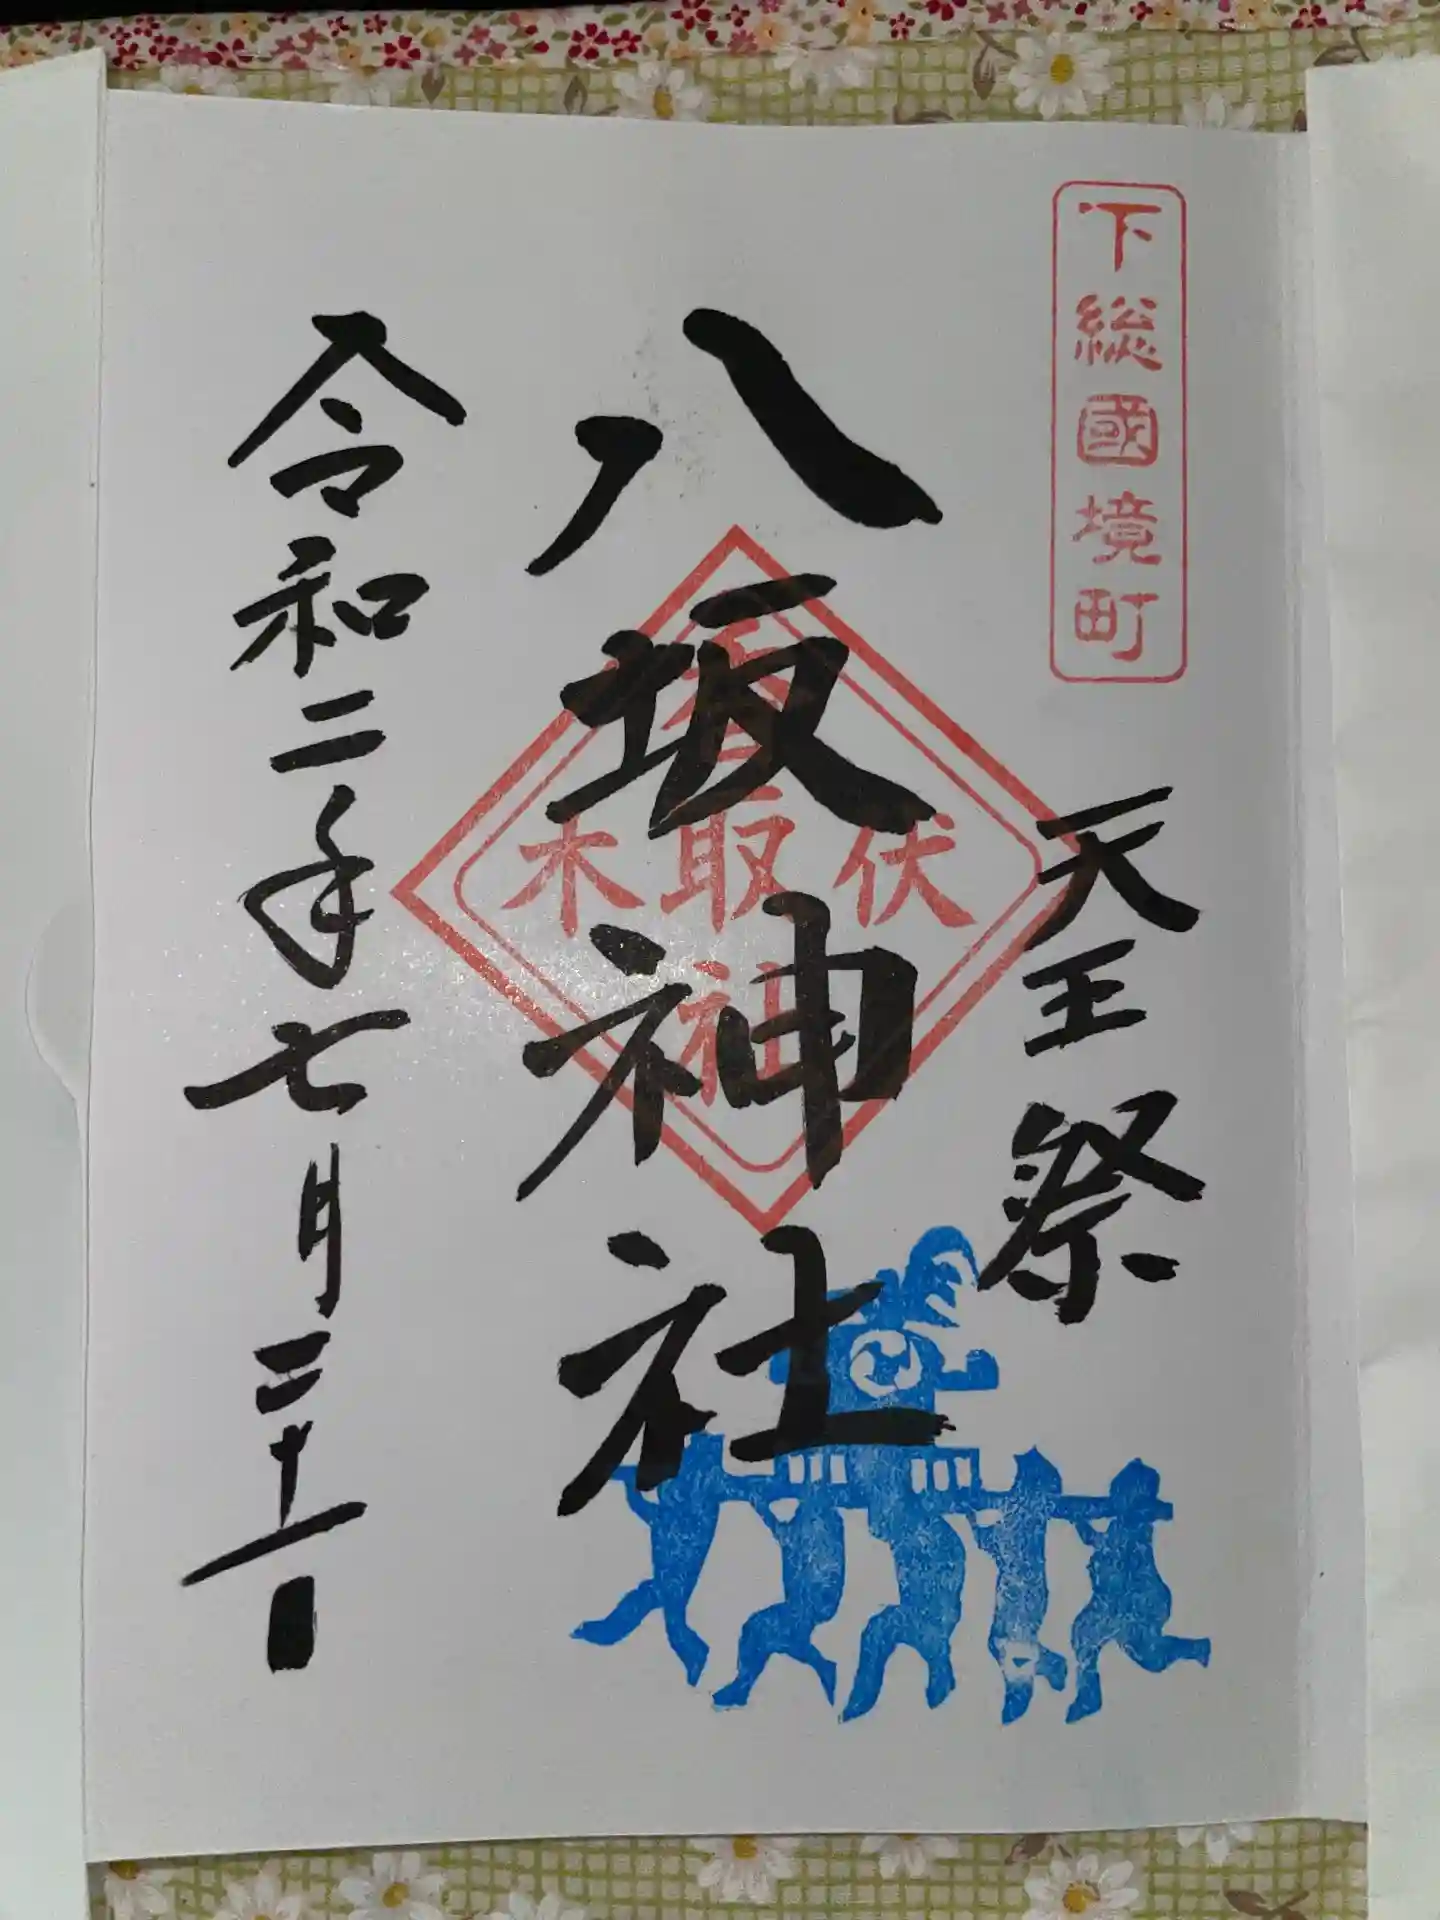 下総國境町
天王祭
八坂神社
香取
伏木
社
令和二年七月三十一日